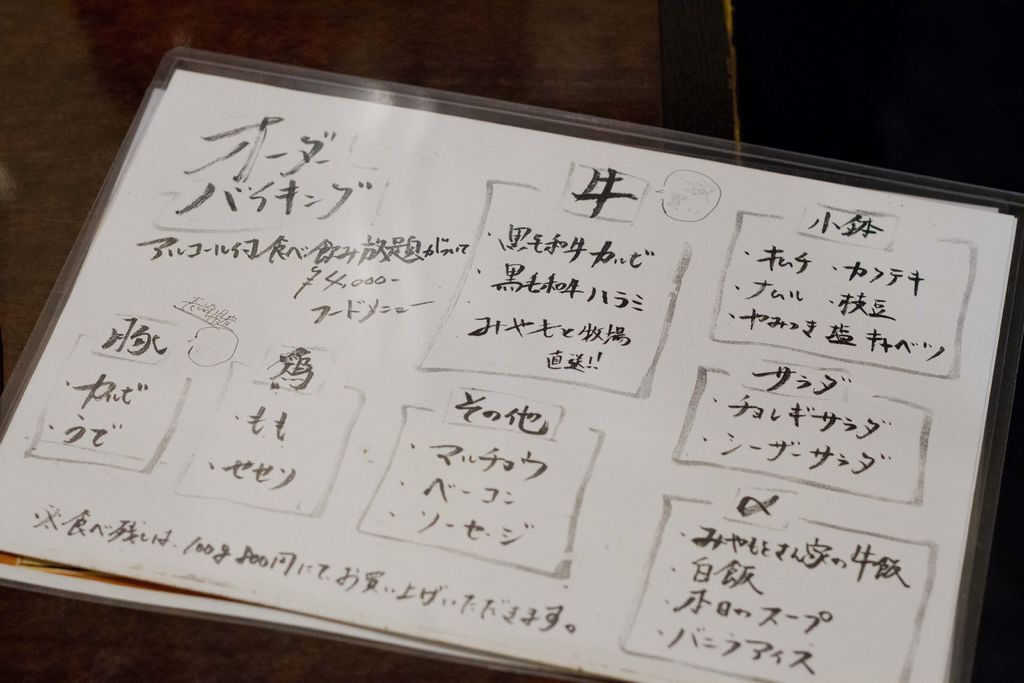 オーダー
バイキング
アルコール付食べ飲み放題がついて
¥4,000-
フードメニュー
牛
・黒毛和牛カルビ
・黒毛和牛ハラミ
みやもと牧場
直送!!
小鉢
・キムチ ・カクテキ
・ナムル ・枝豆
・やみつき塩キャベツ
豚
・カルビ
・うで
鶏
・もも
・せせり
その他
・マルチョウ
・ベーコン
・ソーセージ
サラダ
・チョレギサラダ
・シーザーサラダ
α
・みやもとさん家の牛飯
・白飯
・本日のスープ
・バニラアイス
※食べ残しは、100g 800円にてお買い上げいただきます。